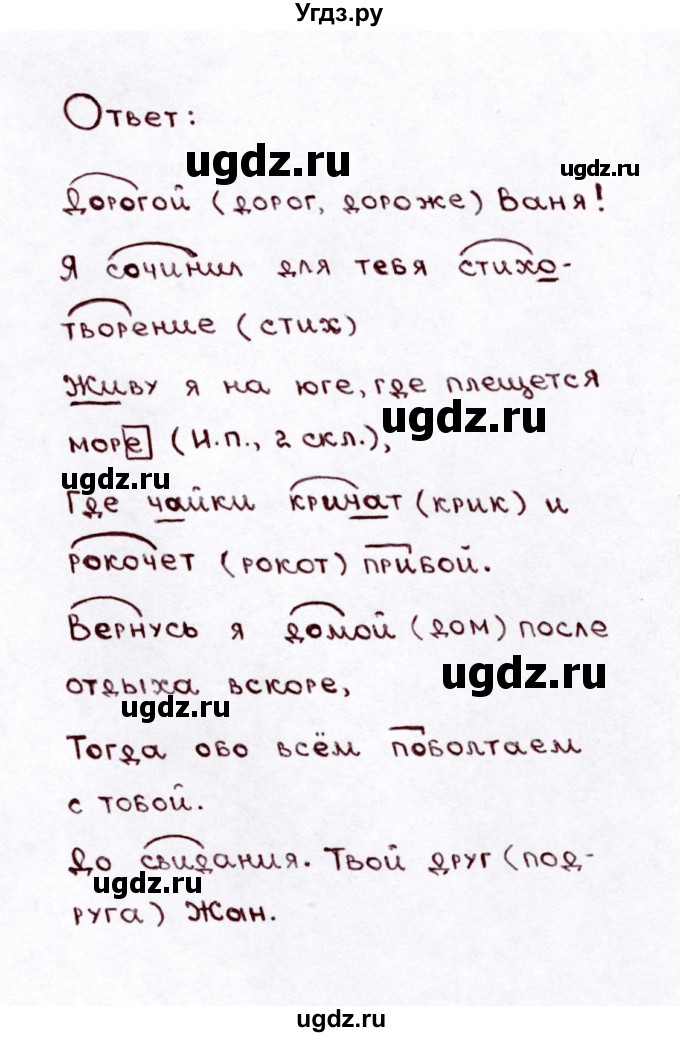 Угдз.ру
Ответ:
ugdz.ru
ugdz.ru
Дорогой (дорог, дороже) Ваня!
Я сочинил для тебя стихо-
творение (стих)
Живу я на юге, где плещется
ugdz.ru
море (И.п., 2 скл.),
ugdz.ru
Где чайки кричат (крик) и
рокочет (рокот) прибой.
Вернусь я домой (дом) после
ugdz.ru
отдыха вскоре,
ugdz.ru
Тогда обо всём поболтаем
с тобой.
До свидания. Твой друг (под-
ugdz.ru
руга) Жан.
ugdz.ru